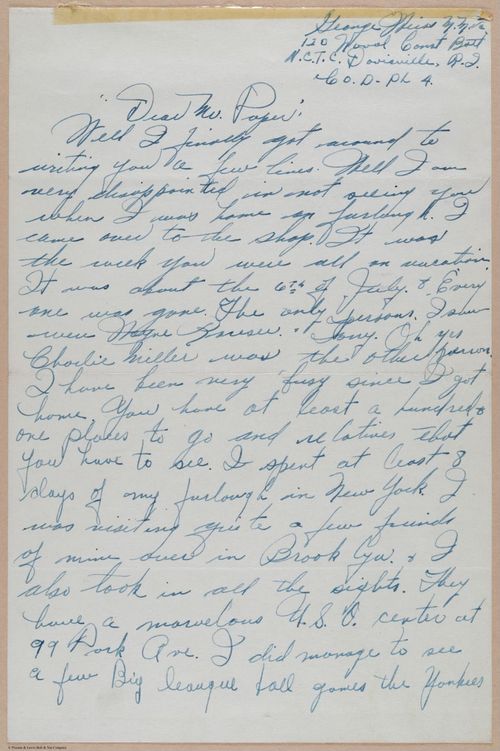 George Weiss
120 Naval Const Batt
N.C.T.C. Davisville, R.I.
Co. D- Pl 4.
"Dear Mr. Pape";
Well I finally got around to
writing you a few lines. Well I am
very disappointed in not seeing you
when I was home on furlough. I
came over to the shop. It was
the week you were all on vacation.
It was about the 6th of July. & Every
one was gone. The only persons, I saw
were Wayne & Tony. Oh yes
Charlie Miller was the other person.
I have been very busy since I got
home. You have at least a hundred &
one places to go and relatives that
you have to see. I spent at least 8
days of my furlough in New York. I
was visiting quite a few friends
of mine over in Brook Lyn. & I
also took in all the sights. They
have a marvelous U.S.O. center at
99 Park Ave. I did manage to see
a few Big league ball games the Yankees